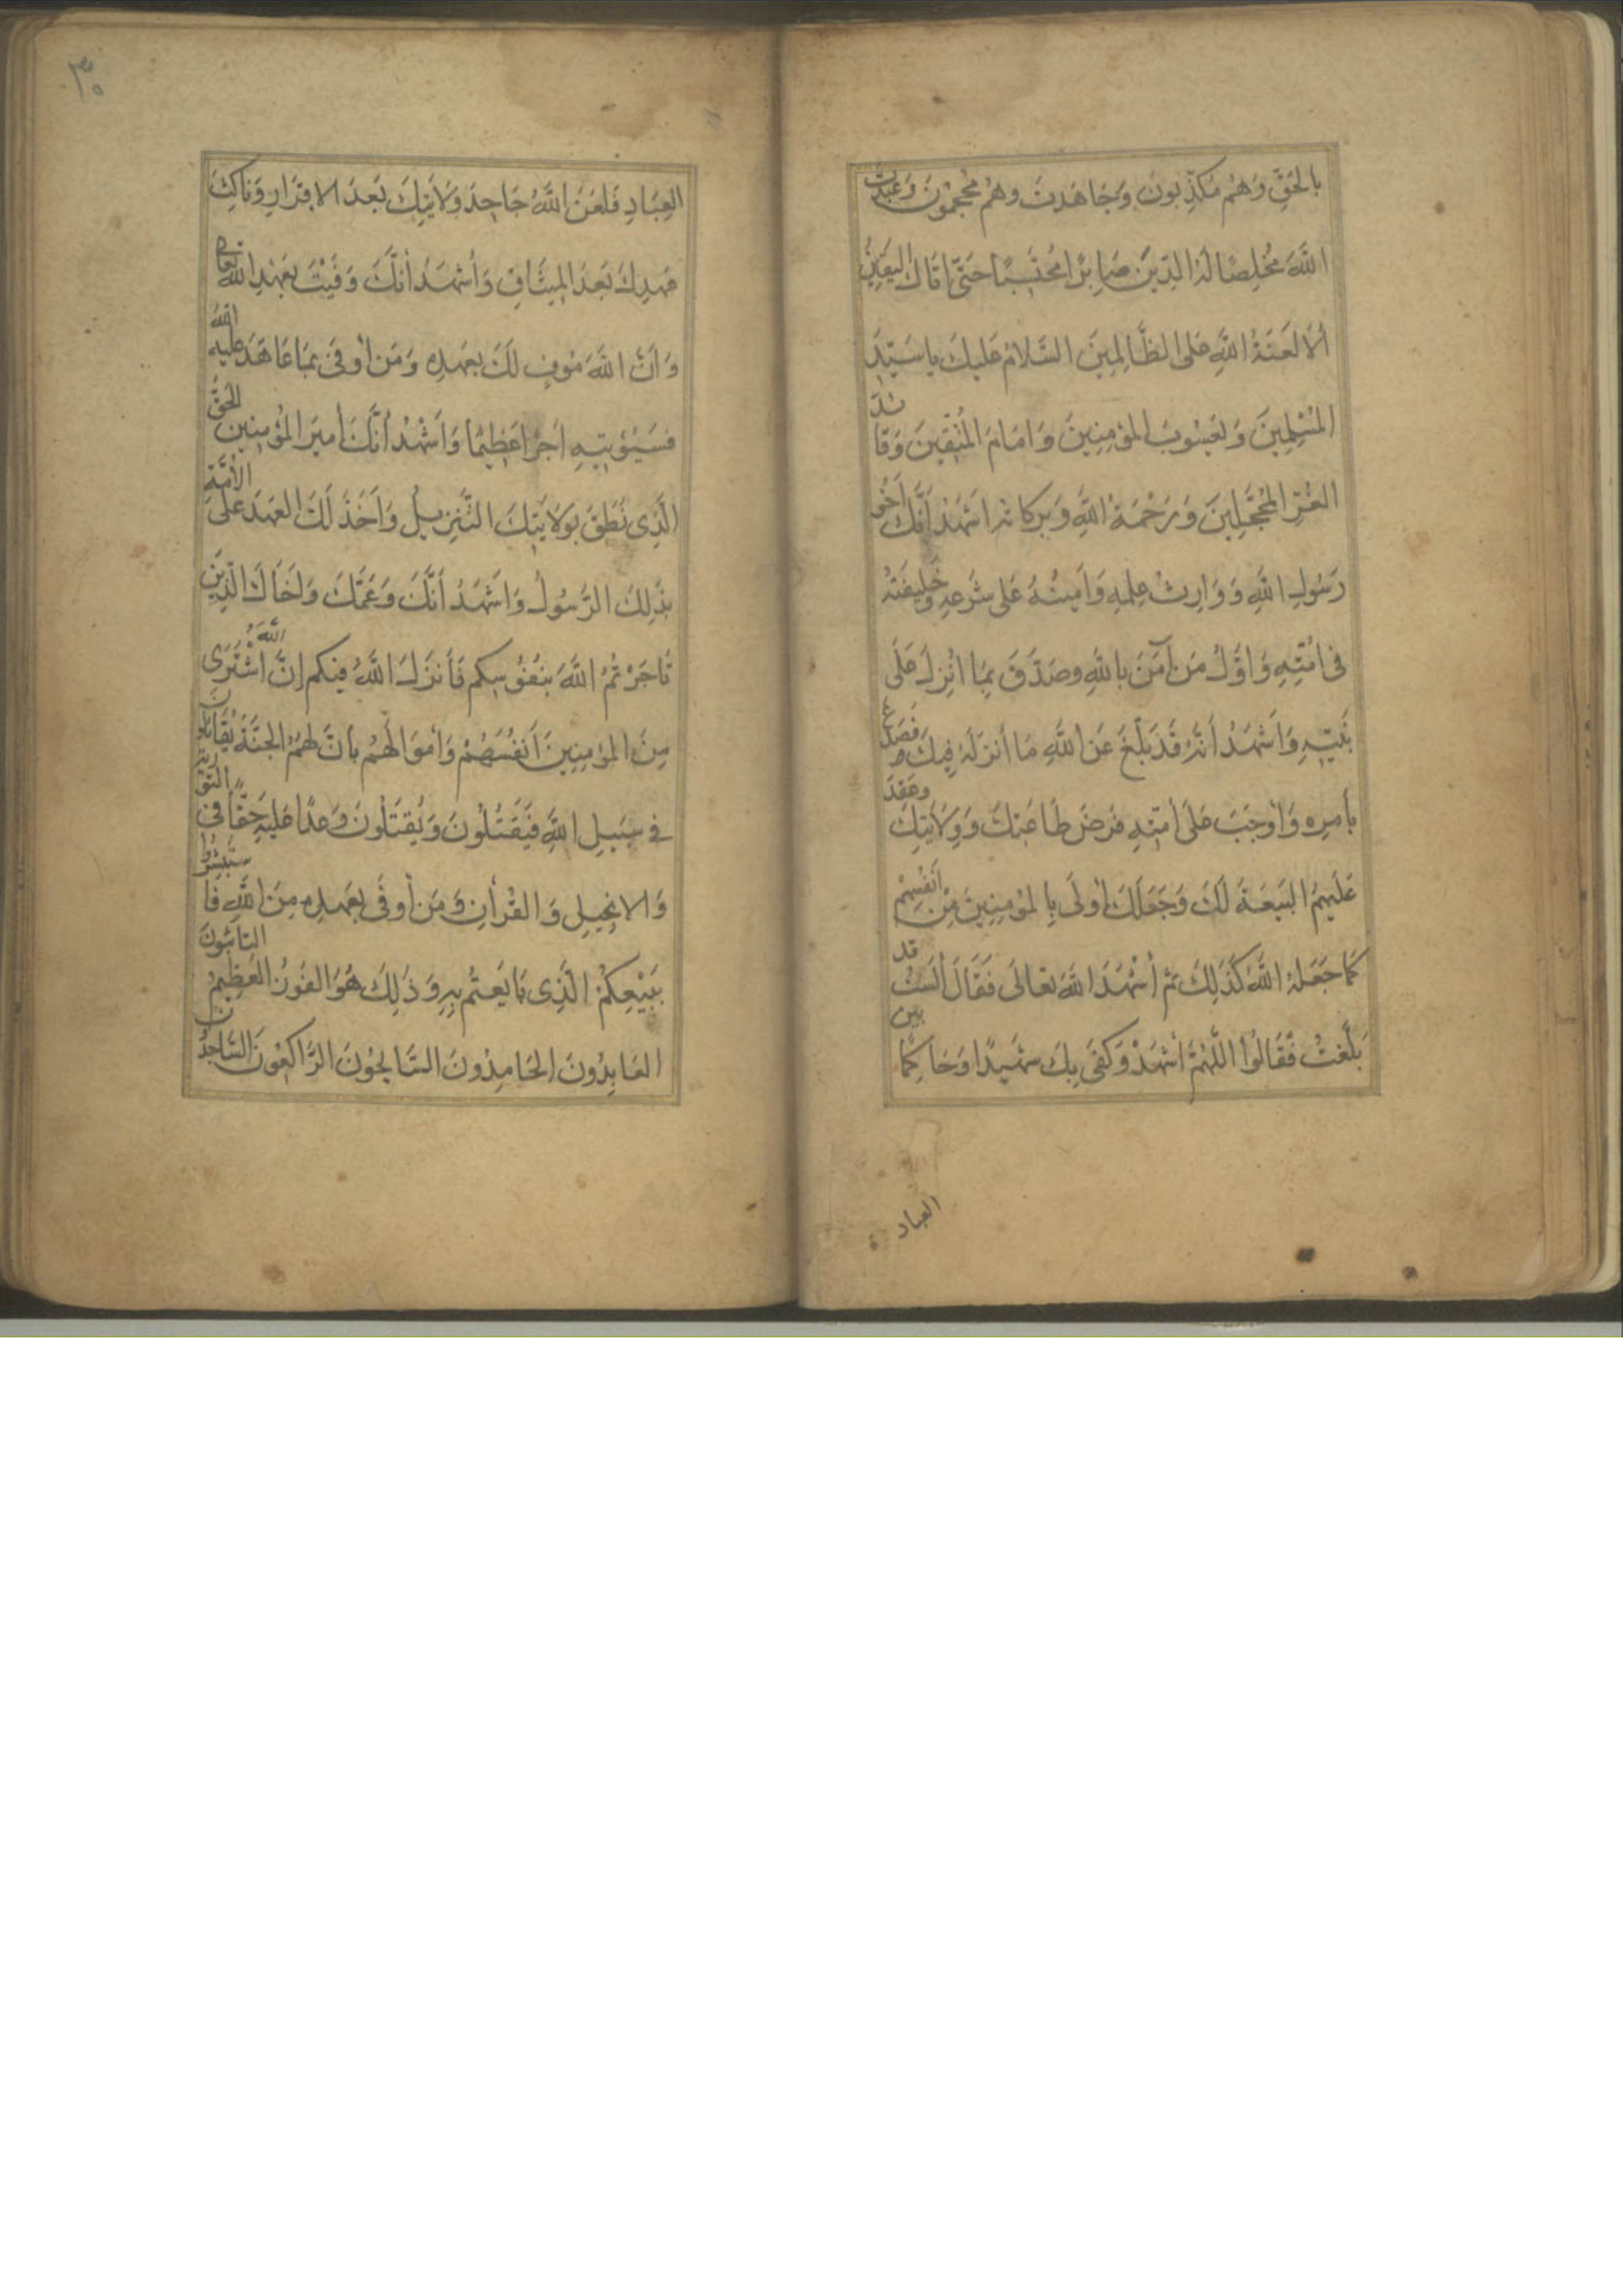 بِالحَقِّ وَهُمْ مُكَذِّبُونَ وَجَاهَدتَ وهُمْ مُحْجِمُونَ وَعَبَدْتَ
اللَّهَ مُخْلِصًا لَهُ الدِّينَ صَابِرًا مُحْتَسِبًا حَتَّى اَتَاكَ اليَقِينُ
أَلَا لَعْنَةُ اللَّهِ عَلَى الظَّالِمِينَ السَّلَامُ عَلَيكَ يا سَيِّدَ
المُسْلِمِينَ وَيَعْسُوبَ المُؤمِنِينَ وَاِمَامَ المُتَّقِينَ وَقَائدَ
الغُرِّ المُحَجَّلِينَ وَرَحْمَةُ اللَّهِ وَبَرَكَاتُهُ اَشْهَدُ أَنَّكَ أَخُو
رَسُولِ اللَّهِ وَوَارِثُ عِلمِهِ وَاَمِينُهُ عَلى شَرْعِهِ وَخَلِيفَتُهُ
فى اُمَّتِهِ وَاَوَّلُ مَن آمَنَ بِاللَّهِ وصَدَّقَ بِمَا اُنْزِلَ عَلَى
نَبِيِّهِ وَاَشْهَدُ أَنَّهُ قَدْ بَلَّغَ عَنِ اللَّهِ مَا أَنزَلَهُ فِيكَ وَصَدَعَ
بِأَمرِهِ وَاَوْجَبَ عَلَى اُمَّتِهِ فَرْضَ طَاعَتِكَ وَوِلَايَتِكَ وَعَقَدَ
عَلَيهِمُ البَيْعَةَ لَكَ وَجَعَلَكَ أَوْلَى بِالمُؤمِنِينَ مِنْ اَنْفُسِهِمْ
كَمَا جَعَلَهُ اللَّهُ كَذَلِكَ ثُمَّ أَشْهَدَ اللَّهَ تَعَالَى فَقَالَ أَلَسْتُ قد
بَلَّغْتُ فَقَالُوا اللَّهُمَّ أَشْهَدْ وَكَفَى بِكَ شَهِيدًا وَحَاكِمًا بَين
العباد
٣٠
العِبَادِ فَلَعَنَ اللَّهُ جَاحِدَ وِلَايَتِكَ بَعْدَ الاِقْرَارِ وَنَاكِثَ
عَهدِكَ بَعْدَ المِيثَاقِ وَأَشْهَدُ أَنَّكَ وَفَيْتَ بِعَهْدِ اللَّهِ تعالى
وَاَنَّ اللَّهَ مُوفٍ لَكَ بِعَهدِهِ وَمَن أَوْفى بِمَا عَاهَدَ عَلَيهُ اللَّهَ
فَسَيُؤتِيهِ اَجْرًا عَظِيمًا وَاَشْهَدُ أَنَّكَ اَمِيرَ المُؤمِنِينَ الحَقُّ
الَّذِى نَطَقَ بِوِلَايَتِكَ التَّنزِيلُ وَاَخَذَ لَكَ العَهدَ عَلَى الأُمَّةِ
بِذَلِكَ الرَّسُولُ وَاَشْهَدُ أَنَّكَ وَعَمَّكَ وَاَخَاكَ الَّذِين
تَاجَرْتُمُ اللَّهَ بِنُفُوسِكم فَأَنزَلَ اللَّهُ فِيكم إِنَّ اللَّهَ اشْتَرَى
مِنَ المؤمِنِينَ اَنفُسَهُمْ وَأَموَالَهُم بِأَنَّ لَهُمُ الجَنَّةَ يُقَاتِلُونَ
فى سَبِيلِ اللَّهِ فَيَقْتُلُونَ وَيُقْتَلُونَ وَعدًا عَلَيهِ حَقًّا فى التَّوْرٰيةِ
وَالاِنْجِيلِ وَالقُرْآنِ وَمَن أَوفَى بِعَهدِهِ مِنَ اللَّهِ فَاستَبْشِرُوا
بِبَيْعِكُمُ الَّذِى بَايَعتُم بِهِ وَذَلِكَ هُوَ الفَوزُ العَظِيمُ التائبُونَ
العَابِدُونَ الحَامِدُونَ السَّائِحُونَ الرَّاكِعُونَ السَّاجِدُونَ